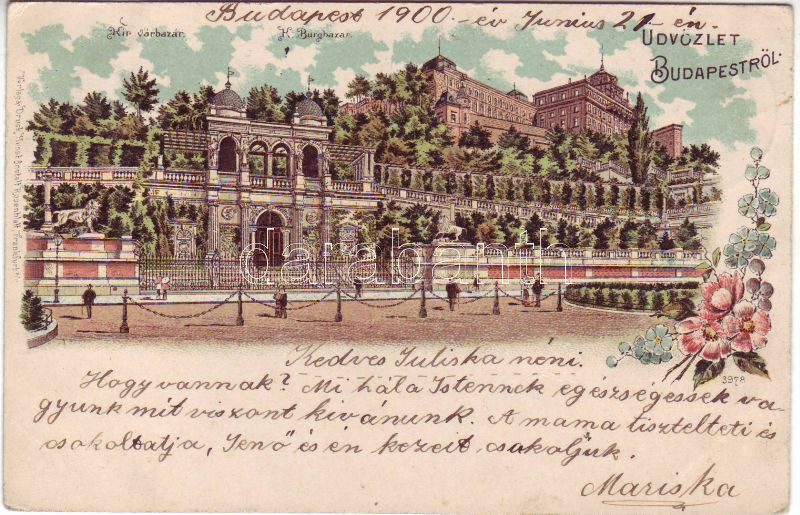 Budapest 1900.-év Junius 21-én.
Kir várbazár.
K. Burgbazar.
ÜDVÖZLET
BUDAPESTRŐL.
darabanth
3978
Kedves Juliska néni.
Hogy vannak? Mi hála Istennek egészségessek va-
gyunk mit viszont kivánunk. A mama tisztelteti és
csokoltatja, Jenő és én kezeit csokoljuk.
Mariska